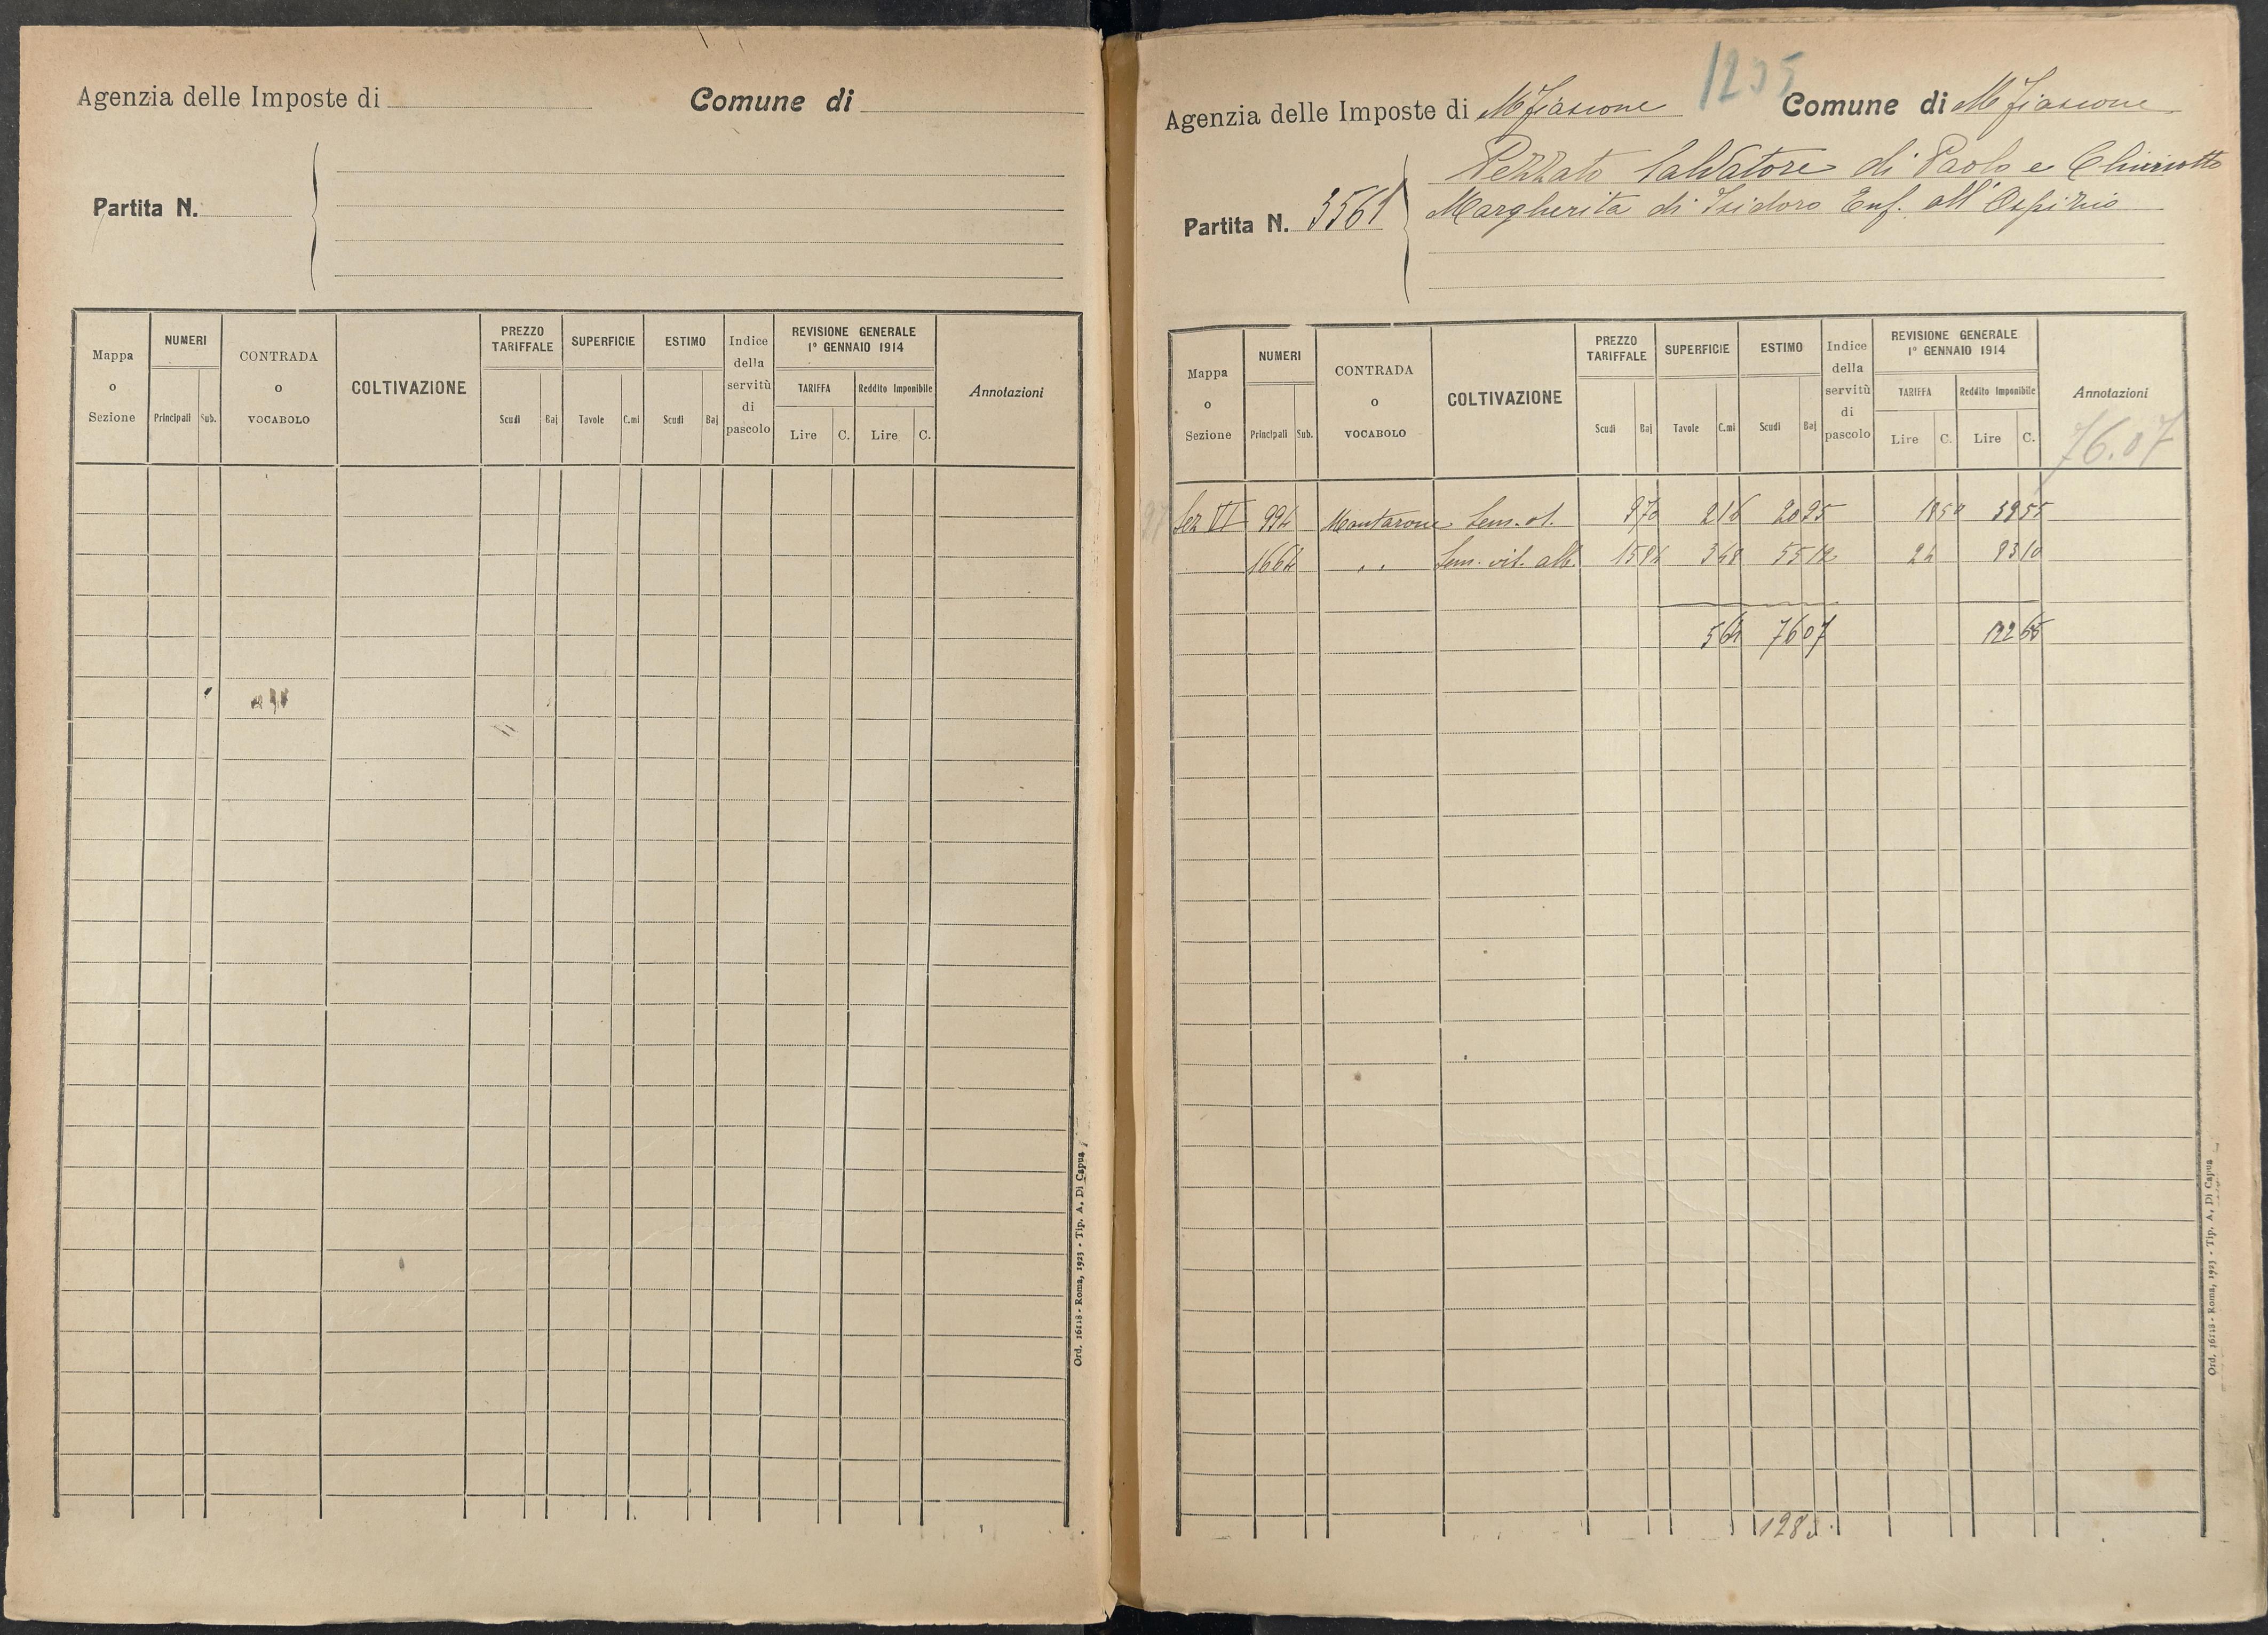 Agenzia delle Imposte di
Comune di
Partita N.
Mappa o Sezione
NUMERI
Principali Sub.
CONTRADA o VOCABOLO
COLTIVAZIONE
PREZZO TARIFFALE
Scudi Baj
SUPERFICIE
Tavole C.mi
ESTIMO
Scudi Baj
Indice della servitù di pascolo
REVISIONE GENERALE
1° GENNAIO 1914
TARIFFA Reddito Imponibile
Lire C. Lire C.
Annotazioni
Ord. 16118 - Roma, 1923 - Tip. A. Di Capua
1235
Agenzia delle Imposte di M Fiascone Comune di M Fiascone
Pezzato Salvatore di Paolo e
Partita N. 3561 Margherita di Isidoro Enf. all' Ospizio
Mappa o Sezione
NUMERI
Principali Sub.
CONTRADA o VOCABOLO
COLTIVAZIONE
PREZZO TARIFFALE
Scudi Baj
SUPERFICIE
Tavole C.mi
ESTIMO
Scudi Baj
Indice della servitù di pascolo
REVISIONE GENERALE
1° GENNAIO 1914
TARIFFA Reddito Imponibile
Lire C. Lire C.
Annotazioni
76.07
Sez VI 994 Mantarone Sem. ol. 970 216 2095 1850 3955
1664 " Sem. vit. alb. 1584 348 5512 24 8310
564 7607 12265
128
Ord. 16118 - Roma, 1923 - Tip. A. Di Capua